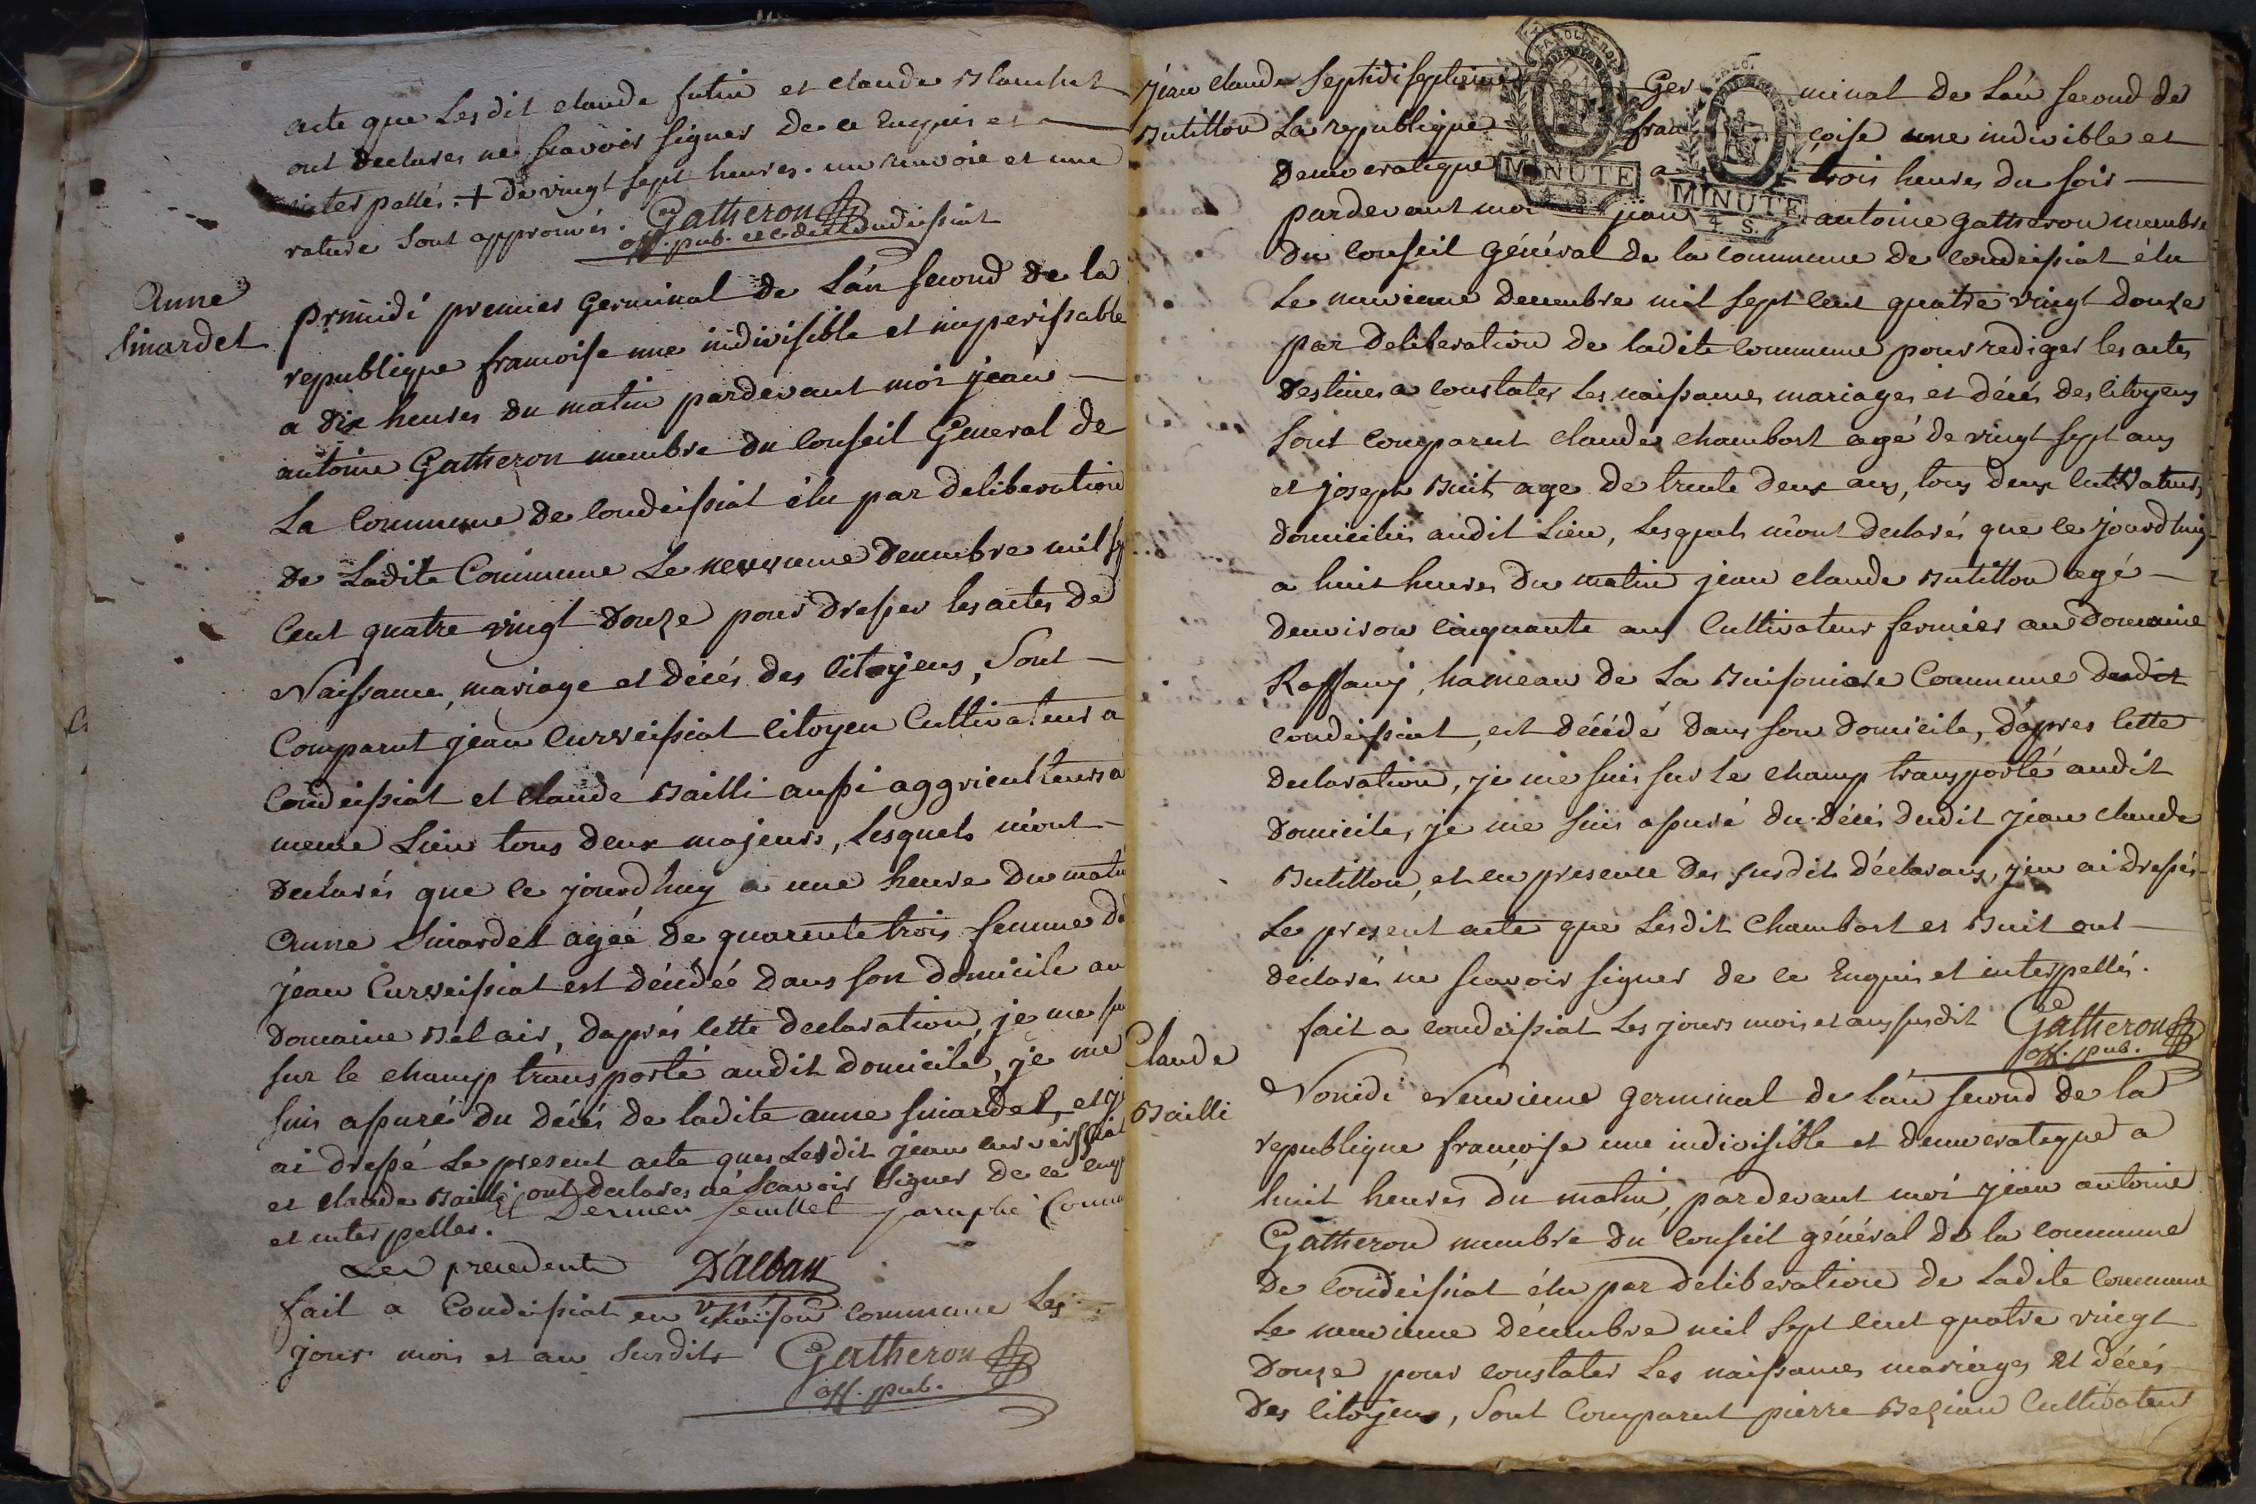 acte que Lesdit claude futin et claude Blanchet
ont declares ne scavoir signer de ce Enquis et
interpellés. + de vingt sept heures. un renvoie et une
rature sont approuvés. Gatheron
off. pub. de condeissiat
Anne
Sinardet
Primidi premier Germinal de L'an second de la
republique francoise une indivisible et imperissable
a dix heures du matin pardevant moi jean
antoine Gatheron membre du Conseil General de
La Commune de Condeissiat élu par deliberation
de Ladite Commune Le neuvieme Decembre mil sept
Cent quatre vingt Douze pour dresser les actes de
Naissance, mariage et décés des Citoyens, Sont
Comparut jean Curveissiat Citoyen Cultivateur a
Condeissiat et Claude Bailli aussi aggriculteurs a
meme Lieu tous deux majeurs, Lesquels m'ont
declarés que ce jourd'huy a une heure du matin
Anne Sinardet agée de quarente trois femme de
jean Curveissiat est décédée dans son domicile au
domaine Bel air, daprés cette declaration, je me suis
sur le champ transporté audit domicile, je me
suis assuré du décés de ladite anne sinardet, et j'
ai dressé Le present acte ques Lesdit jean curveissiat
et claude Bailli ont declares né Scavoir signer de ce enquis
et interpellés. Et Dernier feuillet paraphé Comme
Les precedents D'alban
fait a Condeissiat en maison commune Les
jour mois et an susdits Gatheron
off. pub.
jean claude
Butillon
Septidi septieme Germinal de L'an second de
La republique francoise une indivible et
Democratique a trois heures du soir
pardevant moi jean antoine gatheron membre
du conseil Général de la commune de condeissiat élu
Le neuvieme Decembre mil sept cent quatre vingt douze
par deliberation de ladite commune pour rediger les actes
destines a constater Les naissances mariages et décés des citoyens
sont comparut claude chambort agé de vingt sept ans
et joseph Buit age de trente deux ans, tous deux Cultivateurs
domiciliés audit Lieu, Lesquels m'ont declarés que ce jourd'huy
a huit heures du matin jean claude Butillon agé
denviron cinquante ans Cultivateur fermier au Domaine
Raffany, hameau de La Buisoniere Commune dudit
condeissiat, est décédé dans son domicile, d'apres cette
declaration, je me suis sur Le champ transporté audit
Domicile, je me suis assuré du décés dudit jean claude
Butillon, et en presence des susdits déclarans, j'en ai dressés
Le present acte que Lesdit Chambort et Buit ont
déclarés ne scavoir signer de ce Enquis et interpellés.
fait a condeissiat Les jours mois et an susdit Gatheron
off. pub.
Claude
Bailli
Nonidi Neuvieme germinal de L'an second de la
republique francoise une indivisible et democrateque a
huit heures du matin, pardevant moi jean antoine
Gatheron membre du Conseil général de la commune
de Condeissiat élu par deliberation de Ladite commune
Le neuvieme décembre mil sept cent quatre vingt
Douze pour constater Les naissances mariages et décés
des Citoyens, Sont Comparut pierre Bezian Cultivateur
MINUTE
4 S.
MINUTE
4 S.